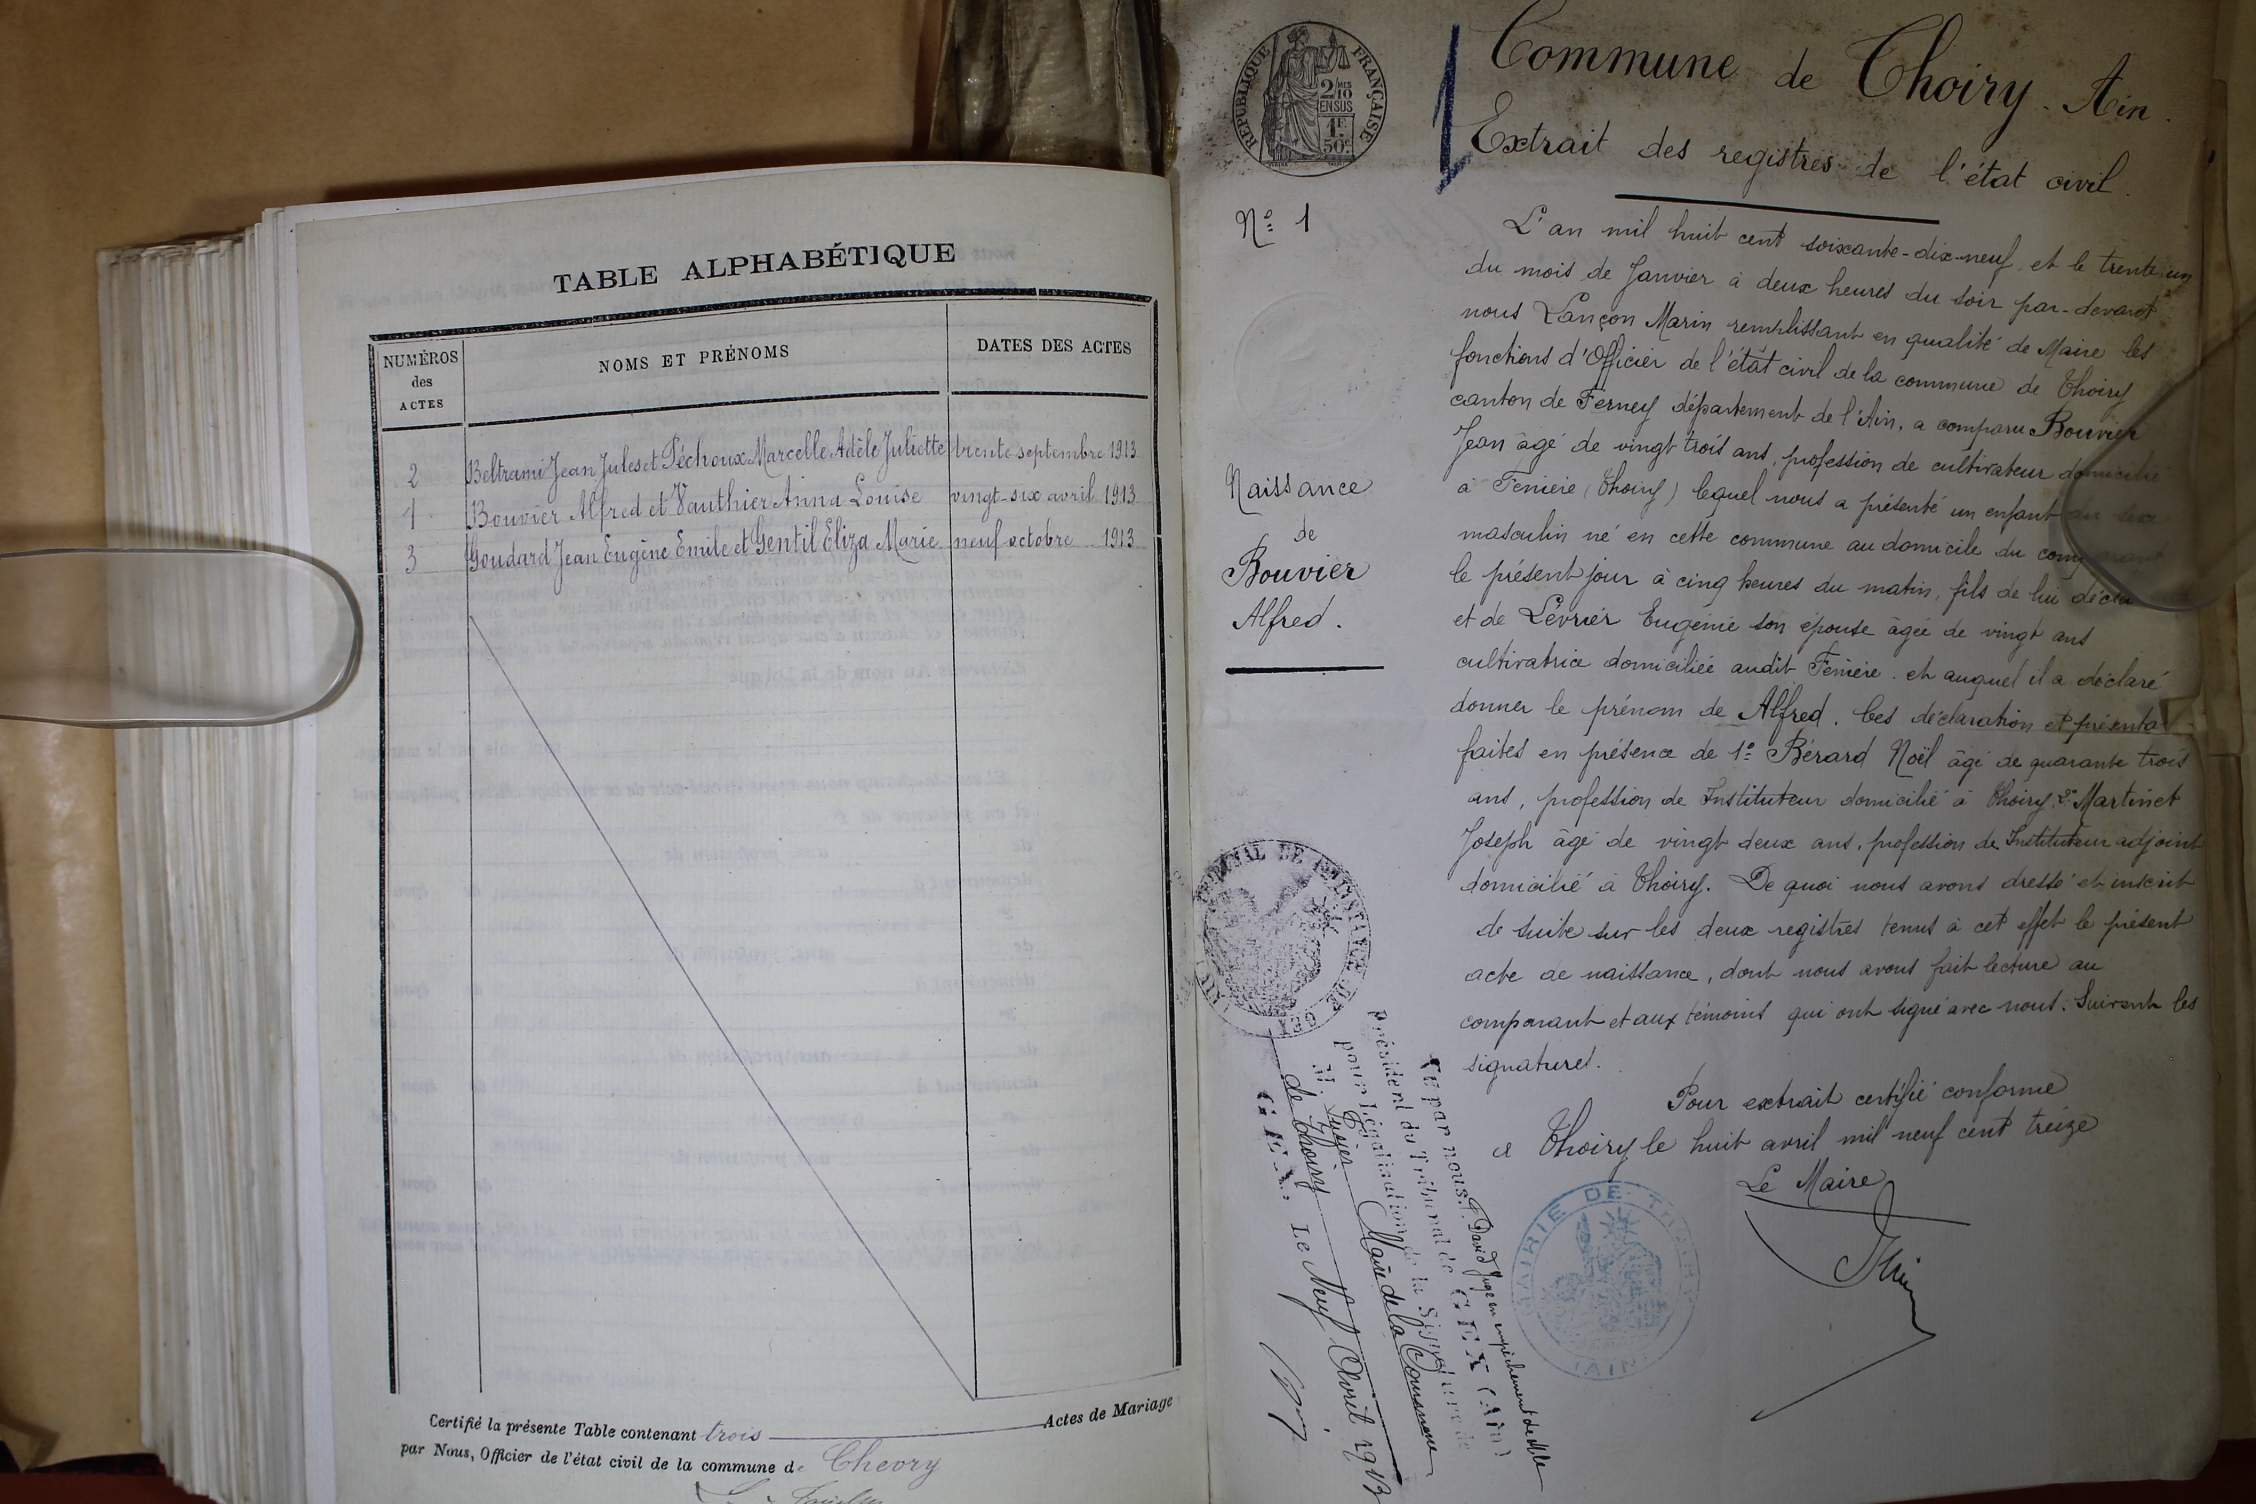 TABLE ALPHABÉTIQUE
NUMÉROS
des
ACTES
NOMS ET PRÉNOMS
DATES DES ACTES
2 Beltrami Jean Jules et Péchoux Marcelle Adèle Juliette trente septembre 1913
1 Bouvier Alfred et Vauthier Anna Louise vingt-six avril 1913
3 Goudard Jean Eugène Emile et Gentil Eliza Marie neuf octobre 1913
Certifié la présente Table contenant trois Actes de Mariage
par Nous, Officier de l'état civil de la commune de Chevry
RÉPUBLIQUE FRANÇAISE
2/10 MES
EN SUS
1F.
50c.
Commune de Thoiry. Ain.
Extrait des registres de l'état civil.
No 1
Naissance
de
Bouvier
Alfred.
L'an mil huit cent soixante-dix-neuf, et le trente un
du mois de Janvier à deux heures du soir par-devant
nous Lançon Marin remplissant en qualité de Maire les
fonctions d'Officier de l'état civil de la commune de Thoiry
canton de Ferney département de l'Ain, a comparu Bouvier
Jean âgé de vingt trois ans, profession de cultivateur domicilié
à Fenière (Thoiry) lequel nous a présenté un enfant du sexe
masculin né en cette commune au domicile du comparant
le présent jour à cinq heures du matin, fils de lui décla
et de Lévrier Eugénie son épouse âgée de vingt ans
cultivatrice domiciliée audit Fenière. et auquel il a déclaré
donner le prénom de Alfred. Ces déclaration et présenta
faites en présence de 1o Bérard Noël âgé de quarante trois
ans, profession de Instituteur domicilié à Thoiry, 2o Martinet
Joseph âgé de vingt deux ans, profession de Instituteur adjoint
domicilié à Thoiry. De quoi nous avons dressé et inscrit
de suite sur les deux registres tenus à cet effet le présent
acte de naissance, dont nous avons fait lecture au
comparant et aux témoins qui ont signé avec nous. Suivent les
signatures.
Pour extrait certifié conforme
à Thoiry le huit avril mil neuf cent treize
Le Maire
MAIRIE DE THOIRY
(AIN)
TRIBUNAL DE 1re INSTANCE DE GEX
Vu par nous, P. David Juge en empêchement de Mr le
Président du Tribunal de GEX (Ain)
pour Légalisation de la Signature de
M. Maire de la Commune
de Thoiry
GEX, Le Neuf Avril 1913